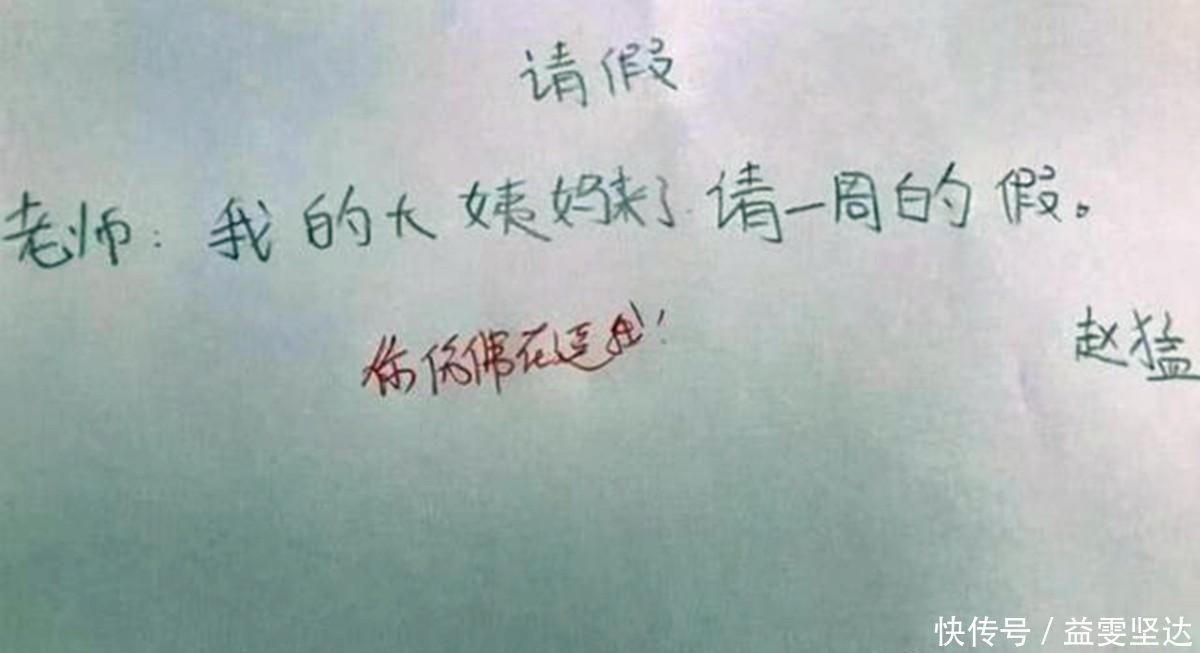 请假
老师：我的大姨妈来了请一周的假。
你仿佛在逗我！
赵猛
快传号/益雯坚达